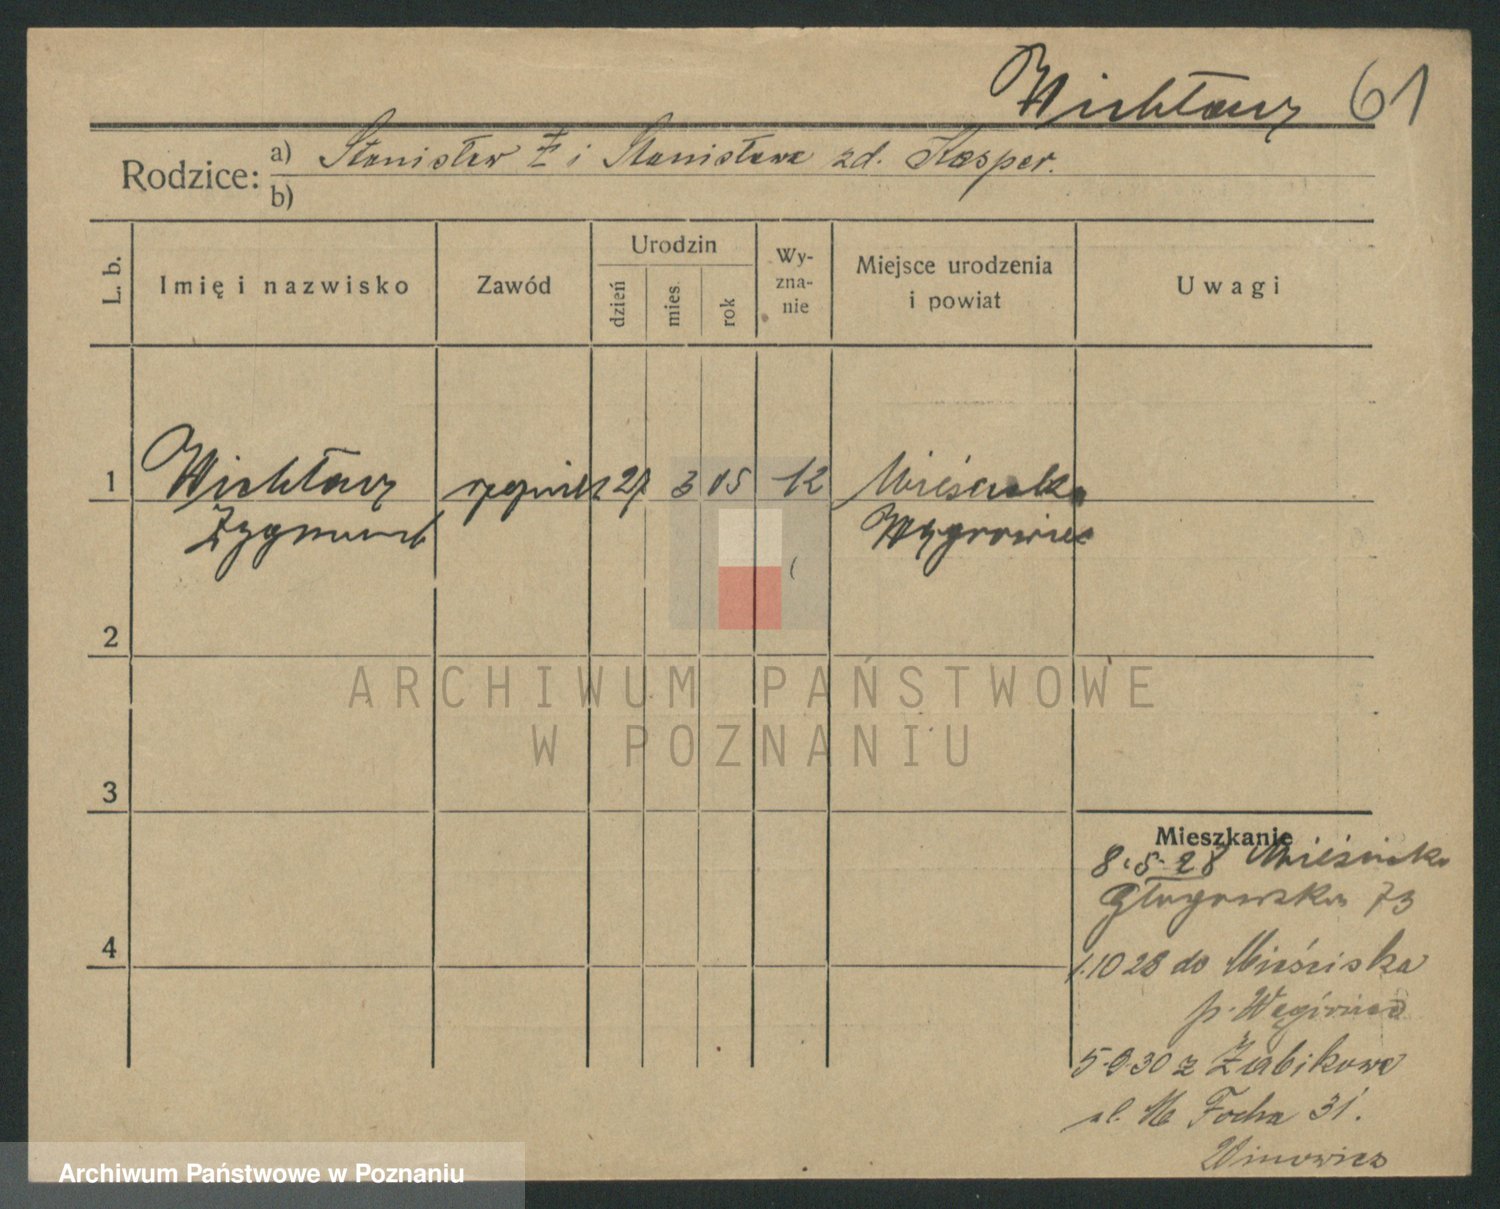 Wichłacz 61
Rodzice: a) Stanisław Ł i Stanisława zd. Kasper.
b)
L. b. Imię i nazwisko Zawód Urodzin dzień mies. rok Wy-zna-nie Miejsce urodzenia i powiat Uwagi
1 Wichłacz 27 3 15 12 Mieścisko
Zygmunt Wągrowiec
2
ARCHIWUM PAŃSTWOWE
W POZNANIU
3
Mieszkanie
8.5.28 Mieścisko
Głogowska 73
4
1.10 28 do Mieściska
p. Wągrowiec
30 z Żabikowa
ul. M Focha 31.
Archiwum Państwowe w Poznaniu